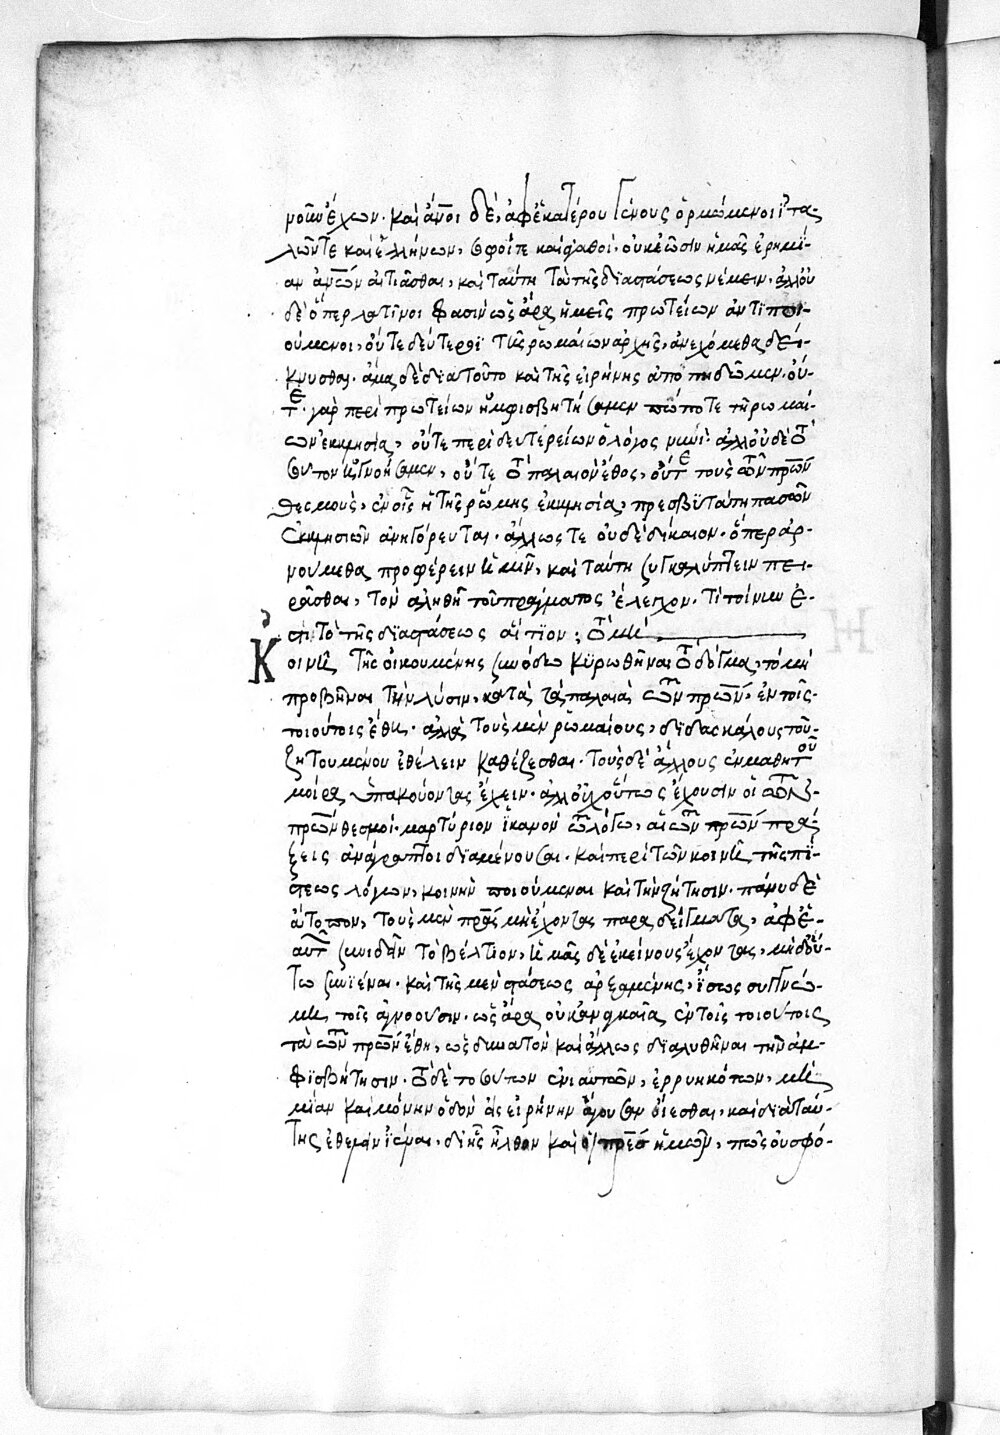 νοῦν ἔχων. καὶ ἄνοι δὲ, ἀφ' ἑκατέρου γένους ὁρμώμενοι ἰτα-
λῶν τε καὶ ἑλλήνων, σοφοί τε καὶ ἀγαθοὶ. οὐκ ἐῶσιν ἡμᾶς ἐρημί-
αν ἀνῶν αἰτιᾶσθαι, καὶ ταύτη τὰ τῆς διαστάσεως νέμειν. ἀλλ' οὐ
δὲ ὅπερ λατῖνοι φασὶν ὡς ἄρα ἡμεῖς πρωτείων ἀντιποι-
ούμενοι, οὔτε δεύτεροι τῆς ῥωμαίων ἀρχῆς, ἀνεχόμεθα δεί-
κνυσθαι. ἅμα δὲ διατοῦτο καὶ τῆς εἰρήνης ἀποπηδῶμεν. οὔ-
τε γὰρ περὶ πρωτείων ἠμφισβητήσαμεν πώποτε τῇ ῥωμαί-
ων ἐκκλησία, οὔτε περὶ δευτερείων ὁ λόγος νυνὶ. ἀλλ' οὐδὲ τὸ
τον ἠγνοήσαμεν, οὔτε τὸ παλαιὸν ἔθος, οὔτε τοὺς τῶν πρων
θεσμοὺς, ἐν οἷς ἡ τῆς ῥώμης ἐκκλησία, πρεσβυτάτη πασῶν
ἐκκλησιῶν ἀνηγόρευται. ἄλλως τε οὐδὲ δίκαιον. ὅπερ ἀρ-
νούμεθα προφέρειν ἡμῖν, καὶ ταύτη συγκαλύπτειν πει-
ρᾶσθαι, τὸν ἀληθῆ τοῦ πράγματος ἔλεγχον. τί τοίνυν ἐ-
στὶ τὸ τῆς διαστάσεως αἴτιον; τὸ μὴ
κοινῆ τῆς οἰκουμένης συνόδω κυρωθῆναι τὸ δόγμα, τὸ μὴ
προβῆναι τὴν λύσιν, κατὰ τὰ παλαιὰ τῶν πρων, ἐν τοῖς
τοιούτοις ἔθη. ἀλλὰ τοὺς μὲν ῥωμαίους, διδασκάλους τοῦ
ζητουμένου ἐθέλειν καθέζεσθαι. τοὺς δὲ ἄλλους ἐν μαθητοῦ
μοίρα ὑπακούοντας ἔχειν. ἀλλ' οὐχ οὕτως ἔχουσιν οἱ τῶν
πρων θεσμοί. μαρτύριον ἱκανὸν τῶ λόγω, αἱ τῶν πρων πρά-
ξεις ἀνάγραπτοι διαμένουσαι. καὶ περὶ τῶν κοινῆ τῆς πί-
στεως λόγων, κοινὴν ποιούμεναι καὶ τὴν ζήτησιν. πάνυ δὲ
ἄτοπον, τοὺς μὲν πρας μὴ ἔχοντας παραδείγματα, ἀφ' ἑ-
αυτῶν συνιδεῖν τὸ βέλτιον, ἡμᾶς δὲ ἐκείνους ἔχοντας, μηδ' οὕ-
τω συνιέναι. καὶ τῆς μὲν στάσεως ἀρξαμένης, ἴσως συγγνώ-
μη τοῖς ἀγνοοῦσιν. ὡς ἄρα οὐκ ἀναγκαῖα ἐν τοῖς τοιούτοις
τὰ τῶν πρων ἔθη, ὡς δυνατὸν καὶ ἄλλως διαλυθῆναι τὴν ἀμ-
φισβήτησιν. τὸ δὲ τοσούτων ἐνιαυτῶν, ἐρρυηκότων, μὴ
μίαν καὶ μόνην ὁδὸν εἰς εἰρήνην ἄγουσαν οἴεσθαι, καὶ διὰ ταύ-
της ἐθέλειν ἰέναι, δι' ἧς ἦλθον καὶ οἱ πρες ἡμῶν, πῶς οὐ σφό-